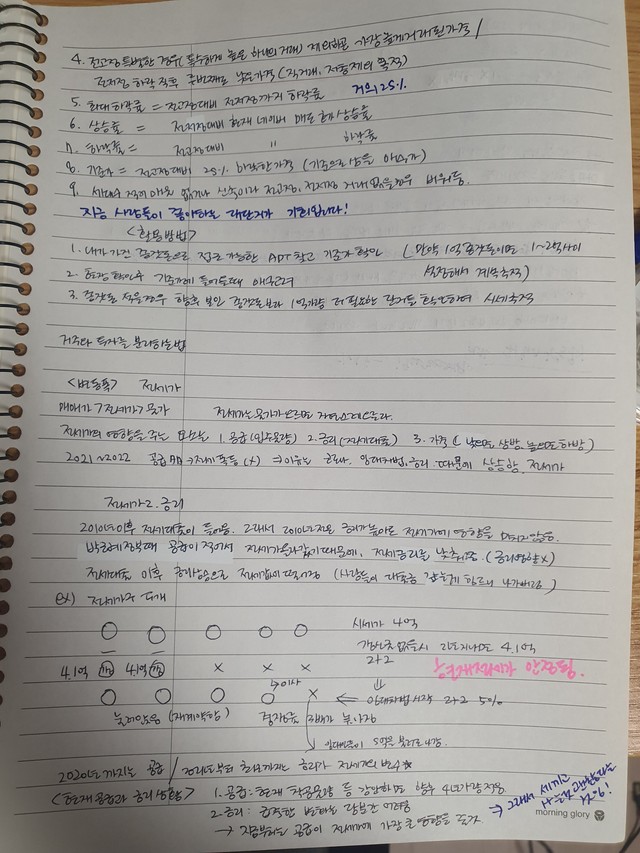 4. 전고점 특별한 경우(특수하게 높은 하나의 거래) 제외하고 가장 높게 거래된 가격
전저점 하락 직후 두번째로 낮은가격 (직거래, 저층제외 목적)
5. 최대하락률 = 전고점대비 전저점까지 하락률 거의 25%
6. 상승률 = 전저점대비 현재 네이버 매물 호가 상승률
7. 하락률 = 전고점대비 〃 하락률
8. 기준가 = 전고점대비 25% 하락한 가격 (기준으로 삼을
9. 세대수 적어 매물 없거나 신축이라 전고점, 전저점 거래 없을경우 비워둠.
지금 사람들이 좋아하는 대단지가 기회입니다!
<활용방법>
1. 내가 가진 종잣돈으로 접근 가능한 APT 찾고 기준가 확인 (만약 1억 종잣돈이면 1~2억사이
설정해서 계속추적)
2. 현장 확인후 기준가에 들어올때 매수고려
3. 종잣돈 적을경우 향후 보인 종잣돈보다 1억가량 더 필요한 단지들 확인하며 시세추적
거주와 투자를 분리하는법
<변동폭> 전세가
매매가 > 전세가 > 물가 전세가는 물가가 오르면 자연스레 오른다.
전세가에 영향을 주는 요소는 1. 공급(입주물량) 2. 금리(전세대출) 3. 가격 ( 낮으면 상방, 높으면 하방)
2021~2022 공급 → 전세폭등 (x) ⇒ 이유는 코로나, 임대차법, 금리 때문에 상승함. 전세가
전세가 2. 금리
2010년이후 전세대출이 들어옴. 그래서 2010년전은 금리가 높아도 전세가에 영향을 미치지 않음.
박근혜정부때 공급이 적어서 전세가 올라갔기 때문에, 전세금리를 낮춰줌. (금리영향x)
전세대출 이후 금리상승으로 전세값이 떨어짐 (사람들이 대출을 감당못 하므로 나가버림)
ex) 전세가구 5개
시세가 4억
갱신권 없을시 2년지나면 4.1억
2+2
4.1억 4.1억 x x x
현재전세가 안정됨.
→이사 x ⇐ 임대차법 시작 2+2 5%
눌러앉음 (재계약함) 결정 전세가 높아짐
임대인들이 5억을 부르고 나감.
2020년까지는 공급 / 금리 전세가의 변수
<현재 공급과 금리 상황> 1. 공급: 현재 착공물량 등 감안하면 향후 4년가량 적음
2. 금리: 급격한 변화는 당분간 어려움
→ 지금부터는 공급이 전세가에 가장 큰 영향을 준다
⇒ 그래서 세끼고 사는것 괜찮다는
morning glory